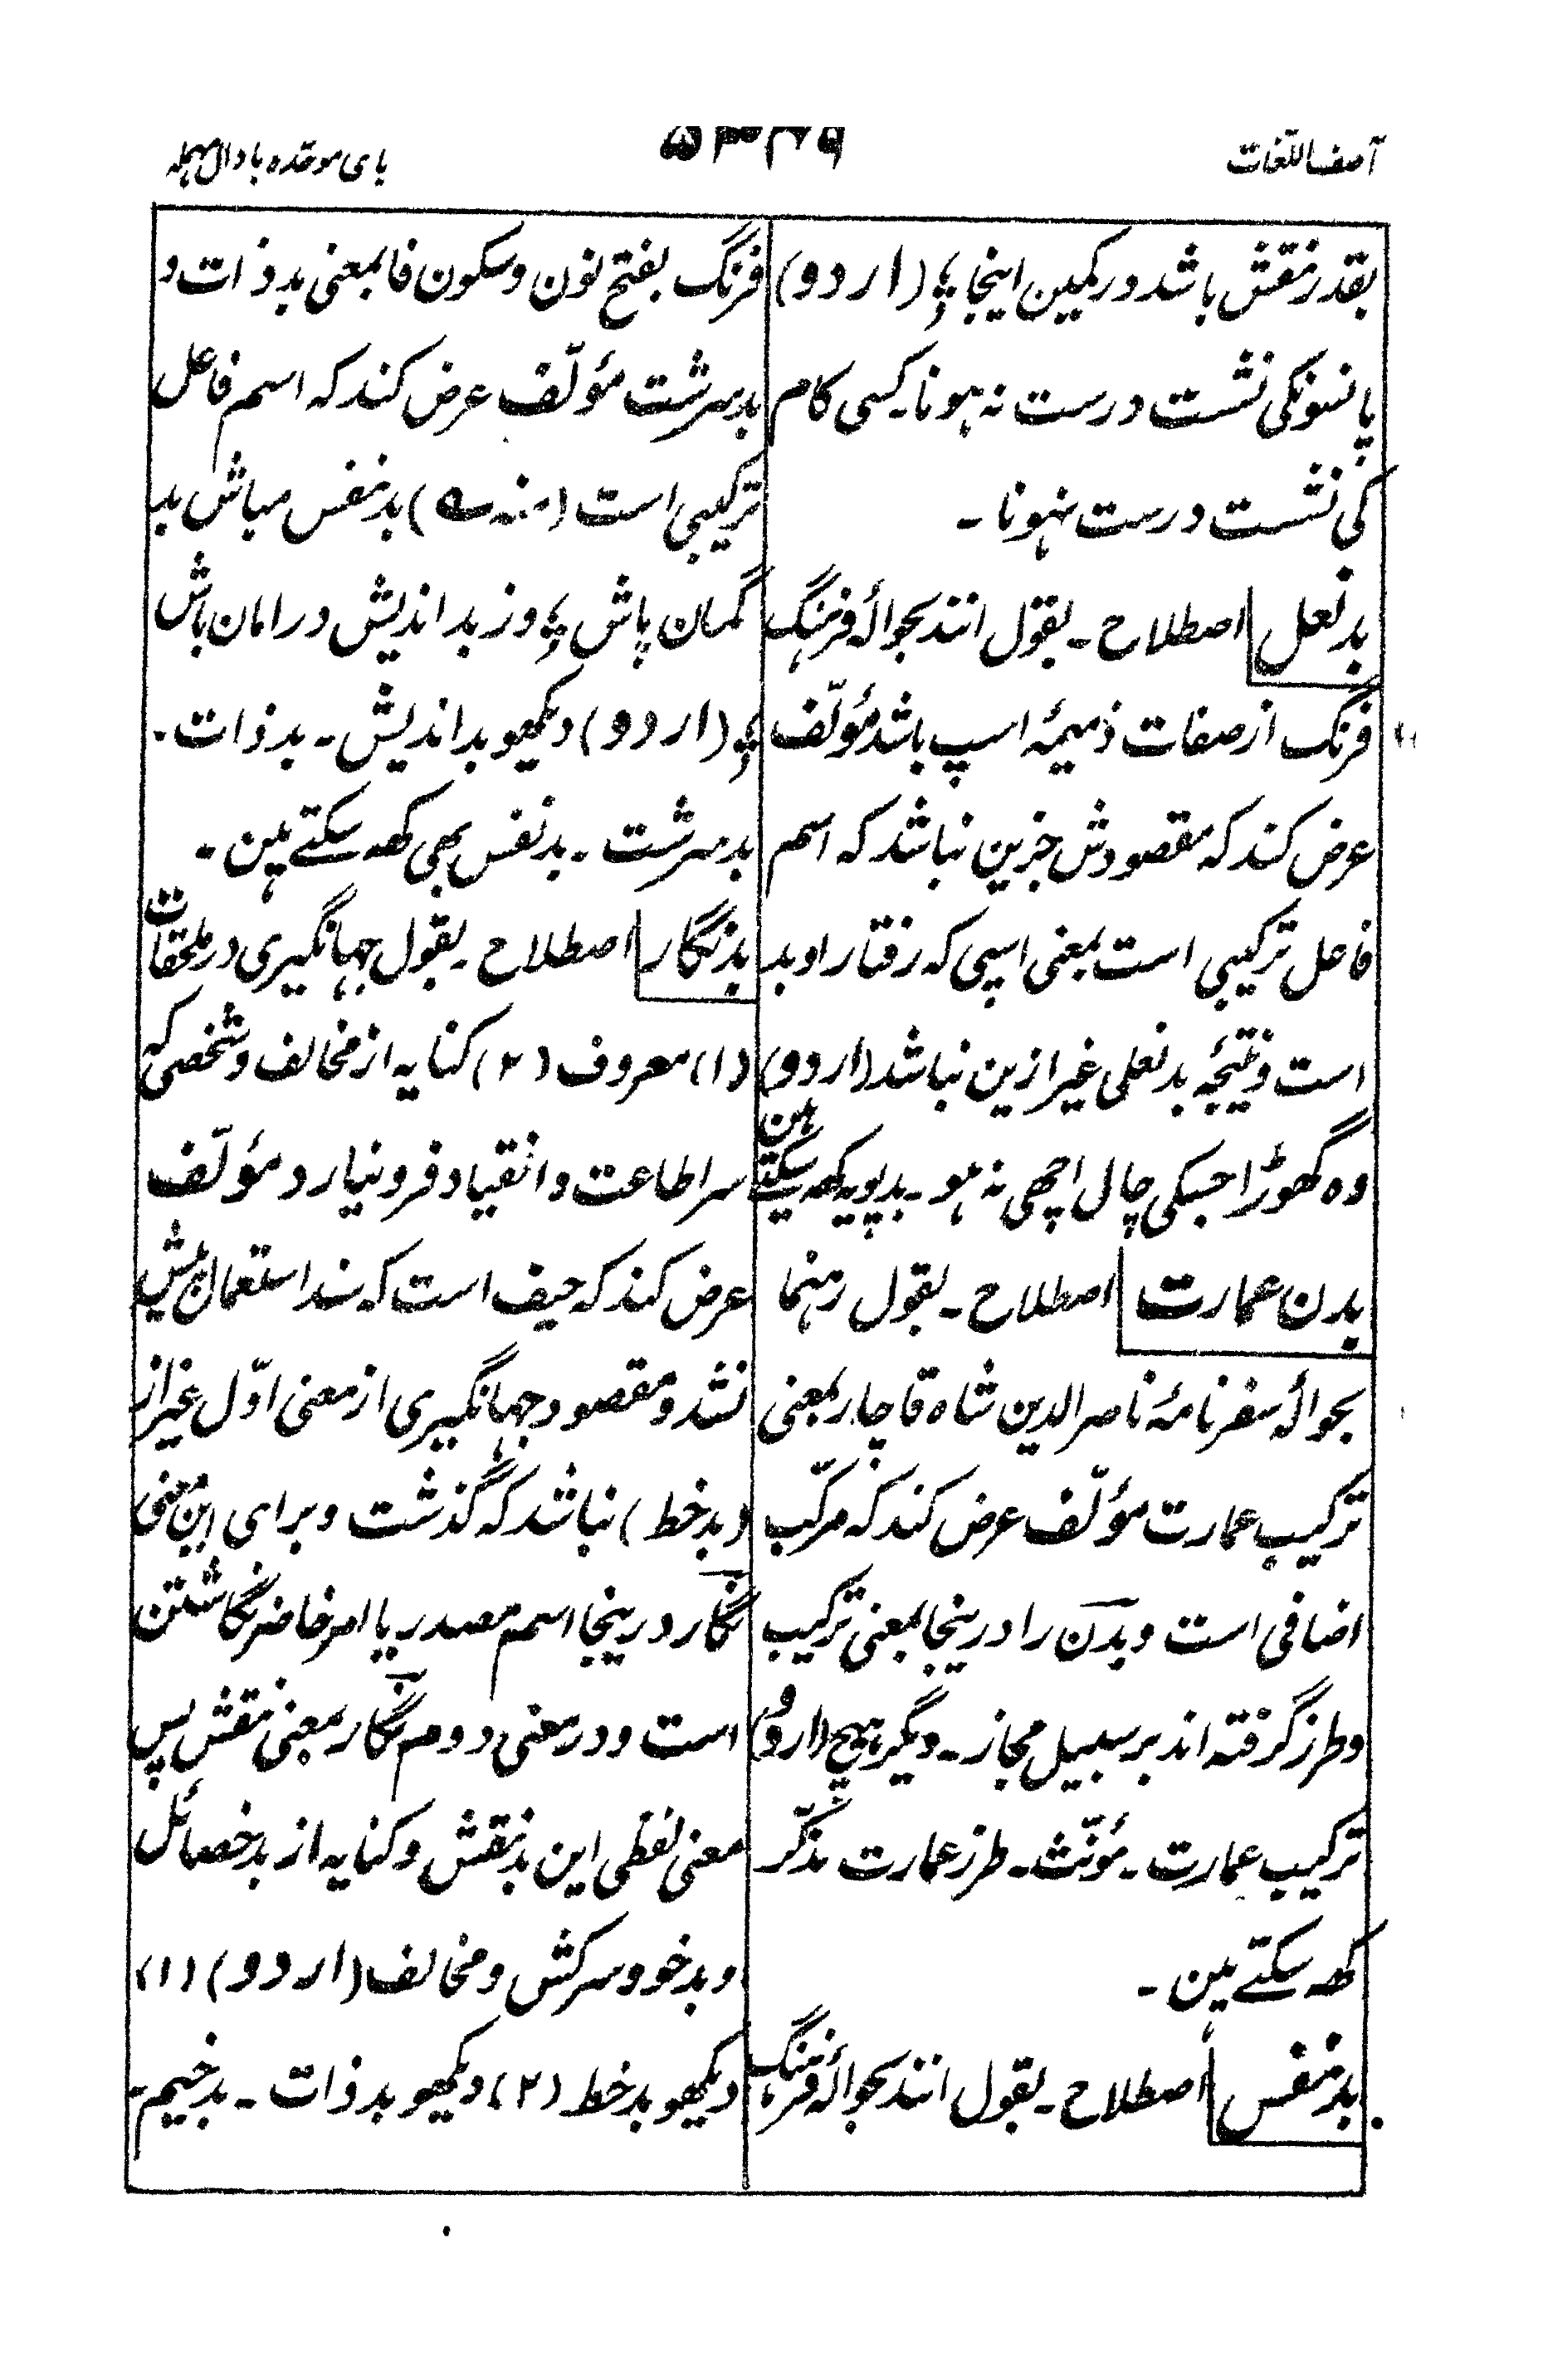 آصف اللّغات
۵۳۴۹
بای موحّده با دال مہملہ
بقدر نقش باشد در کمین اینجا ؛ (اردو)
پانسونکی نشست درست نہ ہونا۔ کسی کام
کی نشست درست نہونا ۔
بدنعل اصطلاح ۔ بقول انند بحوالۂ فرہنگ
فرنگ از صفات ذمیمۂ اسپ باشد مؤلّف
عرض کند کہ مقصودش جزین نباشد کہ اسم
فاعل ترکیبی است بمعنی اسپی کہ رفتار او بد
است و نتیجۂ بدنعلی غیر ازین نباشد (اردو)
وہ گھوڑا جسکی چال اچھی نہ ہو ۔ بدپویہ کھہ سکتے ہین
بدن عمارت اصطلاح ۔ بقول رہنما
بحوالۂ سفرنامۂ ناصر الدین شاہ قاچار بمعنی
ترکیب عمارت مؤلّف عرض کند کہ مرکّب
اضافی است و بدن را در ینجا بمعنی ترکیب
و طرز گرفتہ اند بر سبیل مجاز ۔ دیگر ہیچ (اردو)
ترکیب عمارت ۔ مؤنّث ۔ طرز عمارت مذکّر
کھہ سکتے ہین ۔
بدنفس اصطلاح ۔ بقول انند بحوالۂ فرہنگ
فرنگ بفتح نون و سکون فا بمعنی بد ذات و
بد سرشت مؤلّف عرض کند کہ اسم فاعل
ترکیبی است (منہ ۵) بدنفس مباش بد
گمان باش ؛ وز بد اندیش در امان باش
؛ (اردو) دیکھو بد اندیش ۔ بد ذات ۔
بد سرشت ۔ بدنفس بھی کھہ سکتے ہین ۔
بدنگار اصطلاح ۔ بقول جہانگیری در ملحقات
(۱) معروف (۲) کنایہ از مخالف و شخصی کہ
سر اطاعت و انقیاد فرو نیارد مؤلّف
عرض کند کہ حیف است کہ سند استعمال پیش
نشد و مقصود جہانگیری از معنی اوّل غیر از
(بد خط) نباشد کہ گذشت و برای این معنی
نگار در ینجا اسم مصدر یا امر حاضر نگاشتن
است و در معنی دوم نگار بمعنی نقش پس
معنی لفظی این بد نقش و کنایہ از بد خصائل
و بد خو و سرکش و مخالف (اردو) (۱)
دیکھو بد خط (۲) دیکھو بد ذات ۔ بد خیم ۔